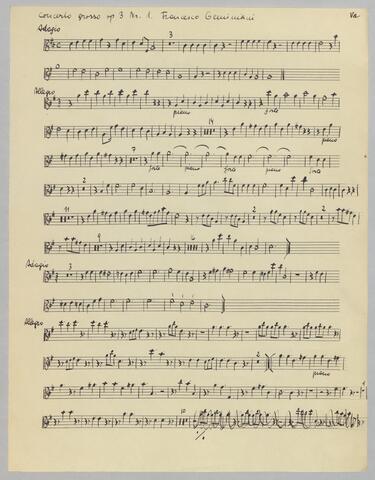 Concerto grosso op 3 Nr. 1. Francesco Geminiani Va
Adagio
3
Allegro
piano forte
14
piano
7
forte piano forte piano forte
2 4
11 2 2
9 6
Adagio
3
Allegro
2 2
piano
10